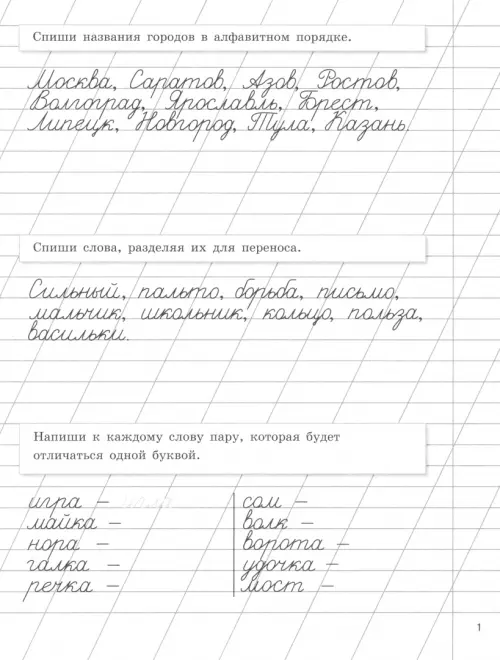 Спиши названия городов в алфавитном порядке.
Москва, Саратов, Азов, Ростов,
Волгоград, Ярославль, Брест,
Липецк, Новгород, Тула, Казань.
Спиши слова, разделяя их для переноса.
Сильный, пальто, борьба, письмо,
мальчик, школьник, кольцо, польза,
васильки.
Напиши к каждому слову пару, которая будет
отличаться одной буквой.
игра –
майка –
нора –
галка –
речка –
сом –
волк –
ворота –
удочка –
мост –
1